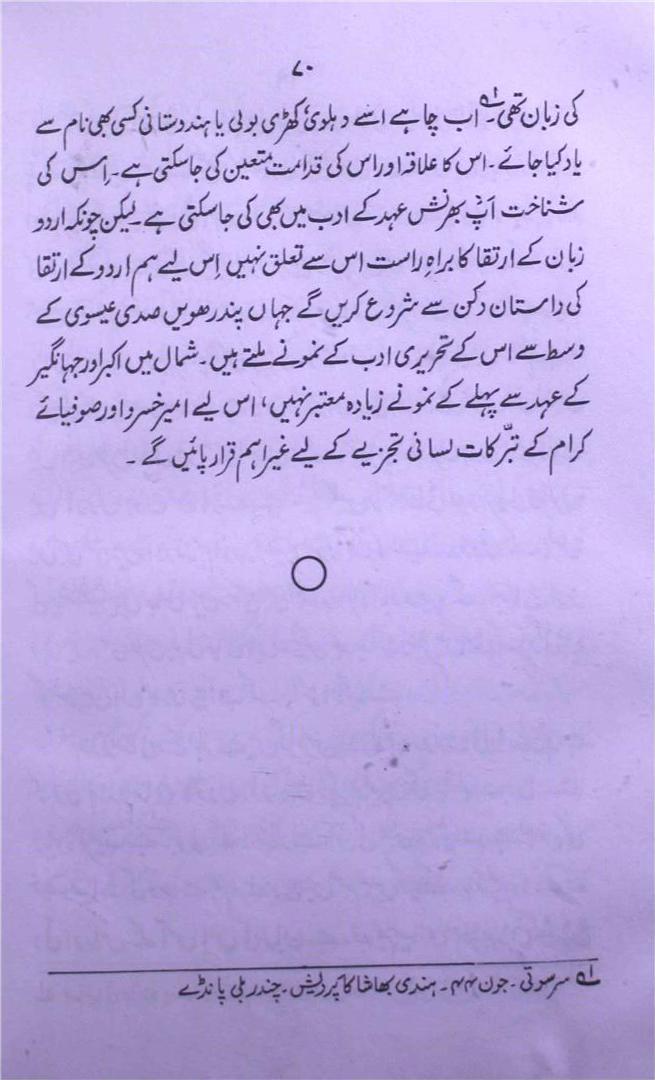 ۷۰
کی زبان تھی۔ؔ۱ اب چاہے اسے دہلوی، کھڑی بولی یا ہندوستانی کسی بھی نام سے
یاد کیا جائے۔ اس کا علاقہ اور اس کی قدامت متعین کی جا سکتی ہے۔ اِس کی
شناخت اَپ بھرنش عہد کے ادب میں بھی کی جا سکتی ہے۔ لیکن چونکہ اردو
زبان کے ارتقا کا براہِ راست اس سے تعلق نہیں اِس لیے ہم اردو کے ارتقا
کی داستان دکن سے شروع کریں گے جہاں پندرھویں صدی عیسوی کے
وسط سے اس کے تحریری ادب کے نمونے ملتے ہیں۔ شمال میں اکبر اور جہانگیر
کے عہد سے پہلے کے نمونے زیادہ معتبر نہیں، اس لیے امیر خسرو اور صوفیائے
کرام کے تبرّکات لسانی تجزیے کے لیے غیر اہم قرار پائیں گے۔
ؔ۱ سرسوتی۔ جون ۴۴ء۔ ہندی بھاشا کا پردیش۔ چندر بلی پانڈے